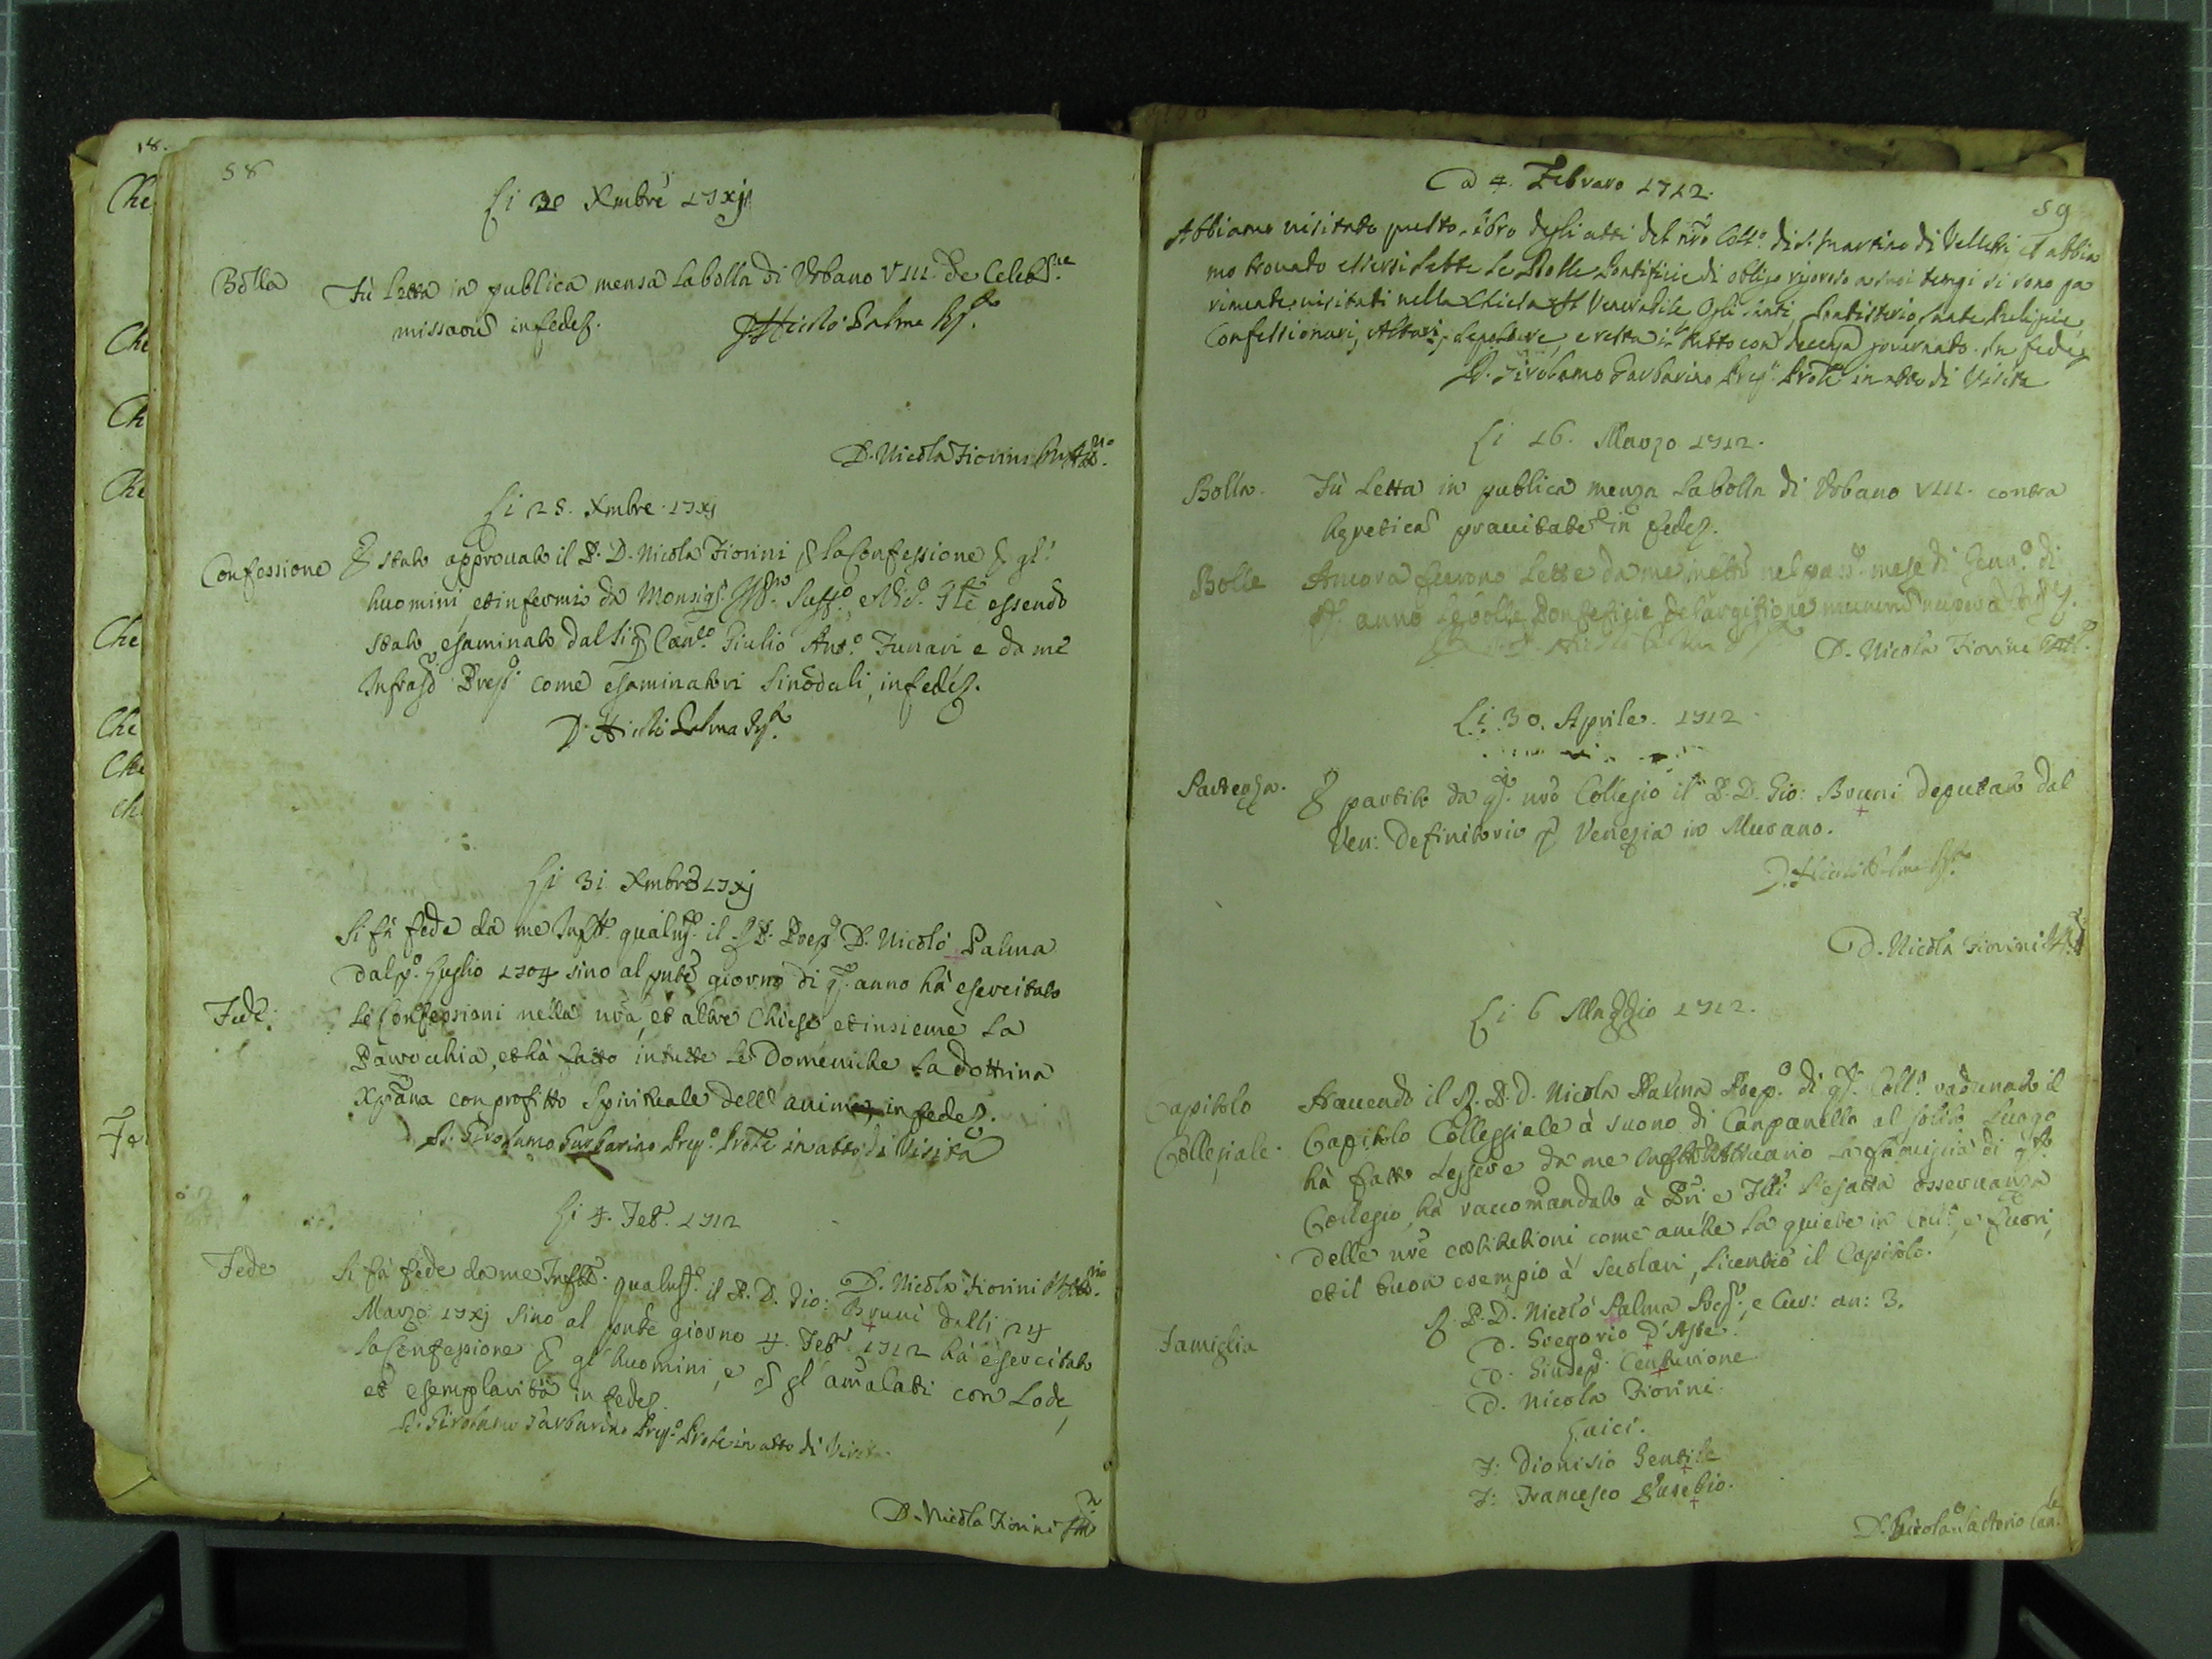 18.
Che
Che
Ch
Che
Che
Che
Che
Ch
Fe
58
Li 30 Xmbre 17xj
Bolla
Fù letta in publica mensa la bolla di Urbano VIII. de Celeb.ne
missarū in fede
D. Nicolò Palma
D. Nicola Fiorini
Li 28. Xmbre 17xj
Confessione
È stato approvato il P. D. Nicola Fiorini p la Confessione p gl'
huomini, et infermi da Monsig.r essendo
stato esaminato dal Sig. Can.co Giulio Ant.o Funari e da me
Infras.o Prep.o come esaminatori Sinodali, in fede
D. Nicolò Palma
Li 31 Xmbre 17xj
Fede.
Si fà fede da me qualm. il P. Prep.o D. Nicolò Palma
dal p.o Luglio 1704 sino al pnte giorno di q. anno hà esercitato
le Confessioni nella nrā, et altre Chiese et insieme la
Parrocchia, et hà fatto in tutte le Domeniche la dottrina
Xpāna con profitto Spirituale dell' anime, in fede
D. Girolamo Garbarino Prep.o Prōle in atto di Visita
Li 4. Feb. 1712
D. Nicola Fiorini
Fede
Si fà fede da me qualm. il P. D. Gio: Bruni dalli 24
Marzo 17xj sino al pnte giorno 4. Feb. 1712 hà esercitato
la Confessione p gl' huomini, e p gl' amalati con lode,
et esemplarità in fede
D. Girolamo Garbarino Prep.o Prōle in atto di Visita
D. Nicola Fiorini
59
A dì 4. Febraro 1712.
Abbiamo visitato questo libro degli atti del nrō Coll.o di S. Martino di Velletri, et abbia
mo trovato essersi lette le Bolle Pontificie di obligo a suoi tempi si sono pa
rimente visitati nella Chiesa il Venerabile Ogli Santi, Battisterio, Sante Reliquie,
Confessionari, Altari, Sepolture, e resta il tutto con decenza governato. In fede
D. Girolamo Garbarino Prep.o Prōle in atto di Visita
Li 16. Marzo 1712.
Bolla.
Fù letta in publica mensa la bolla di Urbano VIII. contra
heretica pravitate in fede
Bolle
Ancora furono lette da me nel pass.o mese di Genn.o di
q. anno le bolle Pontificie de largitione munerū
D. Nicola Fiorini
Li 30. Aprile. 1712
Partenza.
È partito da q. nrō Collegio il P. D. Gio: Bruni deputato dal
Ven: Definitorio p Venezia in Murano.
D. Nicolò Palma
D. Nicola Fiorini
Li 6 Maggio 1712.
Capitolo
Collegiale.
Havendo il P. D. Nicola Palma Prep.o di q. Coll.o radunato il
Capitolo Colleggiale à suono di Campanella al solito luogo
hà fatto leggere da me la famiglia di q.to
Collegio, hà raccomandato à Pri e Flli l'esatta osservanza
delle nrē costitutioni come anche la quiete in Coll.o, e fuori,
et il buon esempio à Secolari, licentiò il Capitolo.
Famiglia
P. D. Nicolò Palma Prep.o, e Cur: an: 3.
D. Gregorio d'Aste.
D. Giusep. Centurione
D. Nicola Fiorini.
Laici.
F: Dionisio Gentile
F: Francesco Eusebio.
D. Sartorio Can.